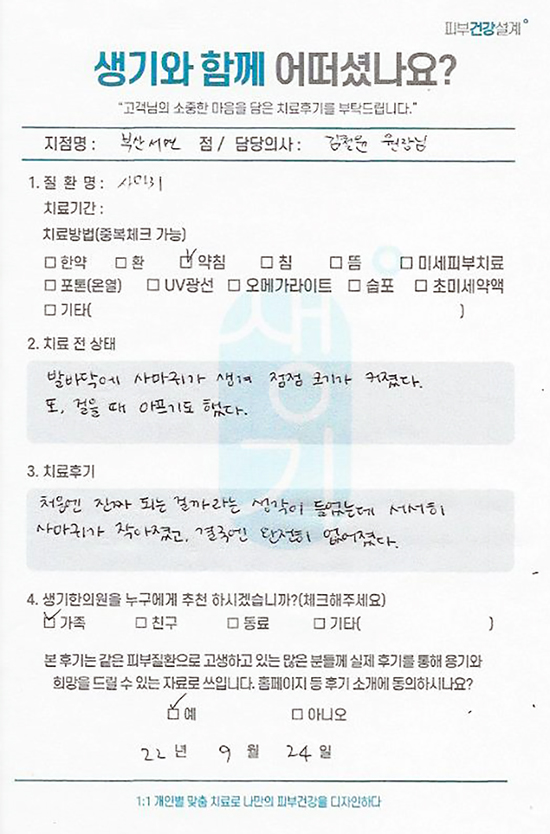 피부건강설계
생기와 함께 어떠셨나요?
“고객님의 소중한 마음을 담은 치료후기를 부탁드립니다.”
지점명 : 부산서면 점 / 담당의사 : 김철윤 원장님
1. 질 환 명 : 사마귀
치료기간 :
치료방법(중복체크 가능)
☐ 한약 ☐ 환 ☑ 약침 ☐ 침 ☐ 뜸 ☐ 미세피부치료
☐ 포톤(온열) ☐ UV광선 ☐ 오메가라이트 ☐ 습포 ☐ 초미세약액
☐ 기타( )
2. 치료 전 상태
발바닥에 사마귀가 생겨 점점 크기가 커졌다.
또, 걸을 때 아프기도 했다.
생기
3. 치료후기
처음엔 진짜 되는 걸까라는 생각이 들었는데 서서히
사마귀가 작아졌고, 결국엔 완전히 없어졌다.
4. 생기한의원을 누구에게 추천 하시겠습니까?(체크해주세요)
☑ 가족 ☐ 친구 ☐ 동료 ☐ 기타( )
본 후기는 같은 피부질환으로 고생하고 있는 많은 분들께 실제 후기를 통해 용기와
희망을 드릴 수 있는 자료로 쓰입니다. 홈페이지 등 후기 소개에 동의하시나요?
☑ 예 ☐ 아니오
22 년 9 월 24 일
1:1 개인별 맞춤 치료로 나만의 피부건강을 디자인하다